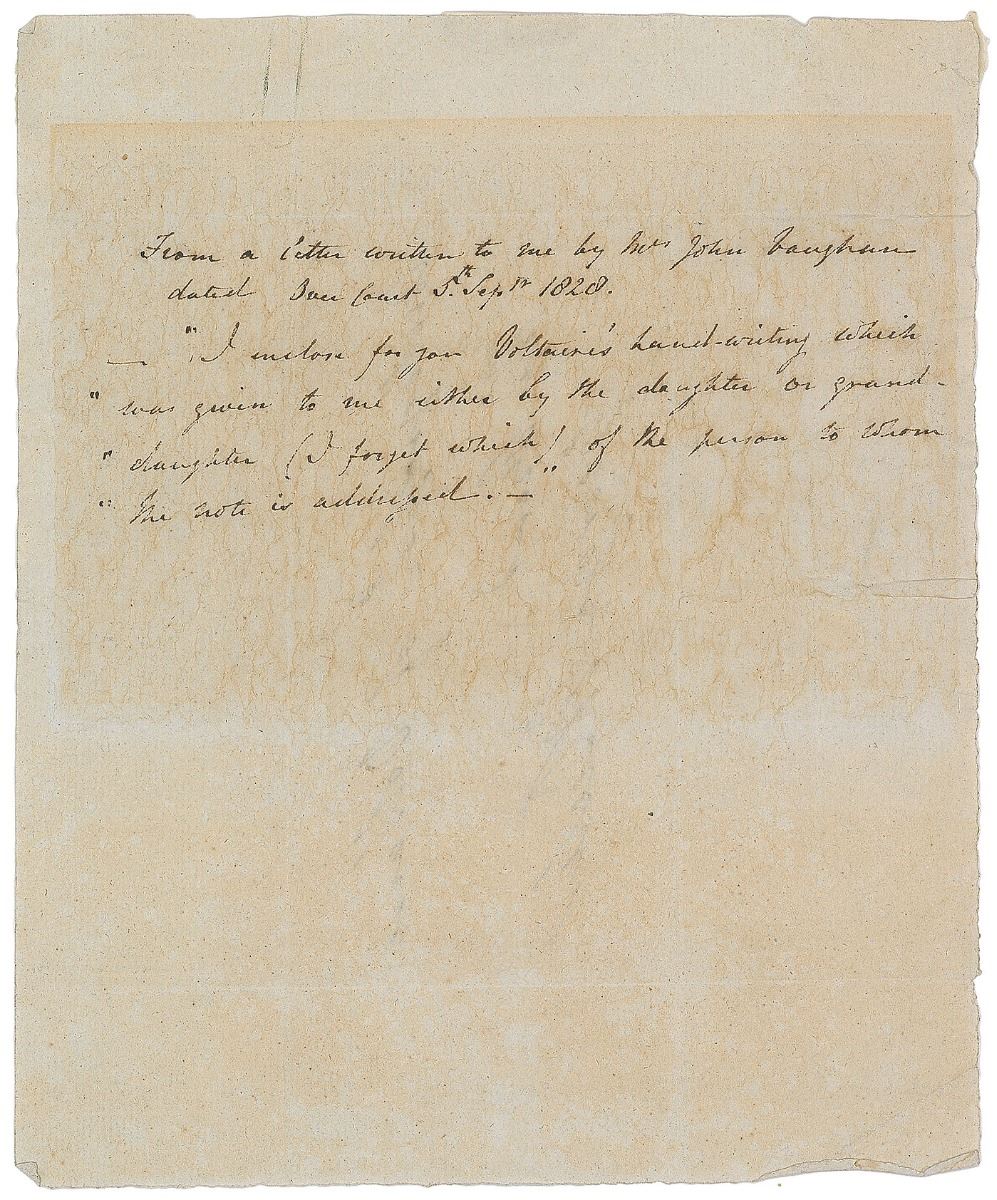 From a letter written to me by Mrs John Vaughan
dated Over Court 5th Sepr 1828.
— " I enclose for you Voltaire's hand-writing which
" was given to me either by the daughter or grand-
" daughter (I forget which) of the person to whom
" the note is addressed. — "